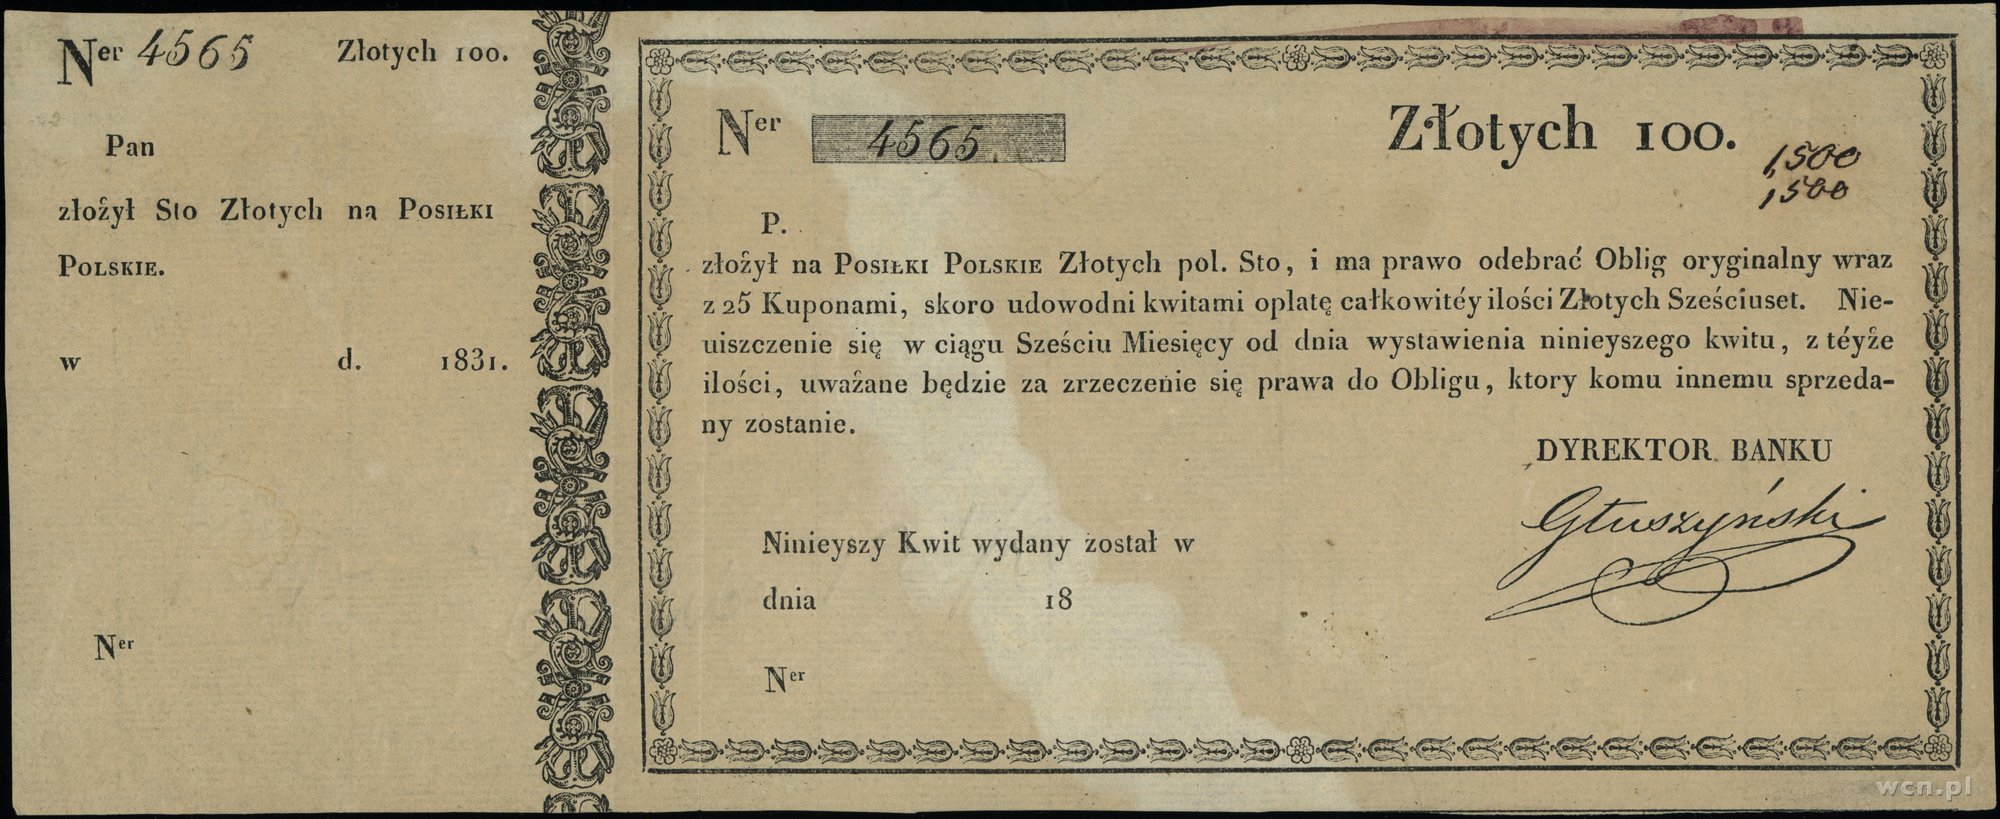 Ner 4565 Złotych 100.
Pan
złożył Sto Złotych na POSIŁKI
POLSKIE.
w d. 1831.
Ner
Ner 4565 Złotych 100.
1,500
1,500
P.
złożył na POSIŁKI POLSKIE Złotych pol. Sto, i ma prawo odebrać Oblig oryginalny wraz
z 25 Kuponami, skoro udowodni kwitami opłatę całkowitéy ilości Złotych Sześciuset. Nie-
uiszczenie się w ciągu Sześciu Miesięcy od dnia wystawienia ninieyszego kwitu, z téyże
ilości, uważane będzie za zrzeczenie się prawa do Obligu, ktory komu innemu sprzeda-
ny zostanie.
DYREKTOR BANKU
Głuszyński
Ninieyszy Kwit wydany został w
dnia 18
Ner
wcn.pl